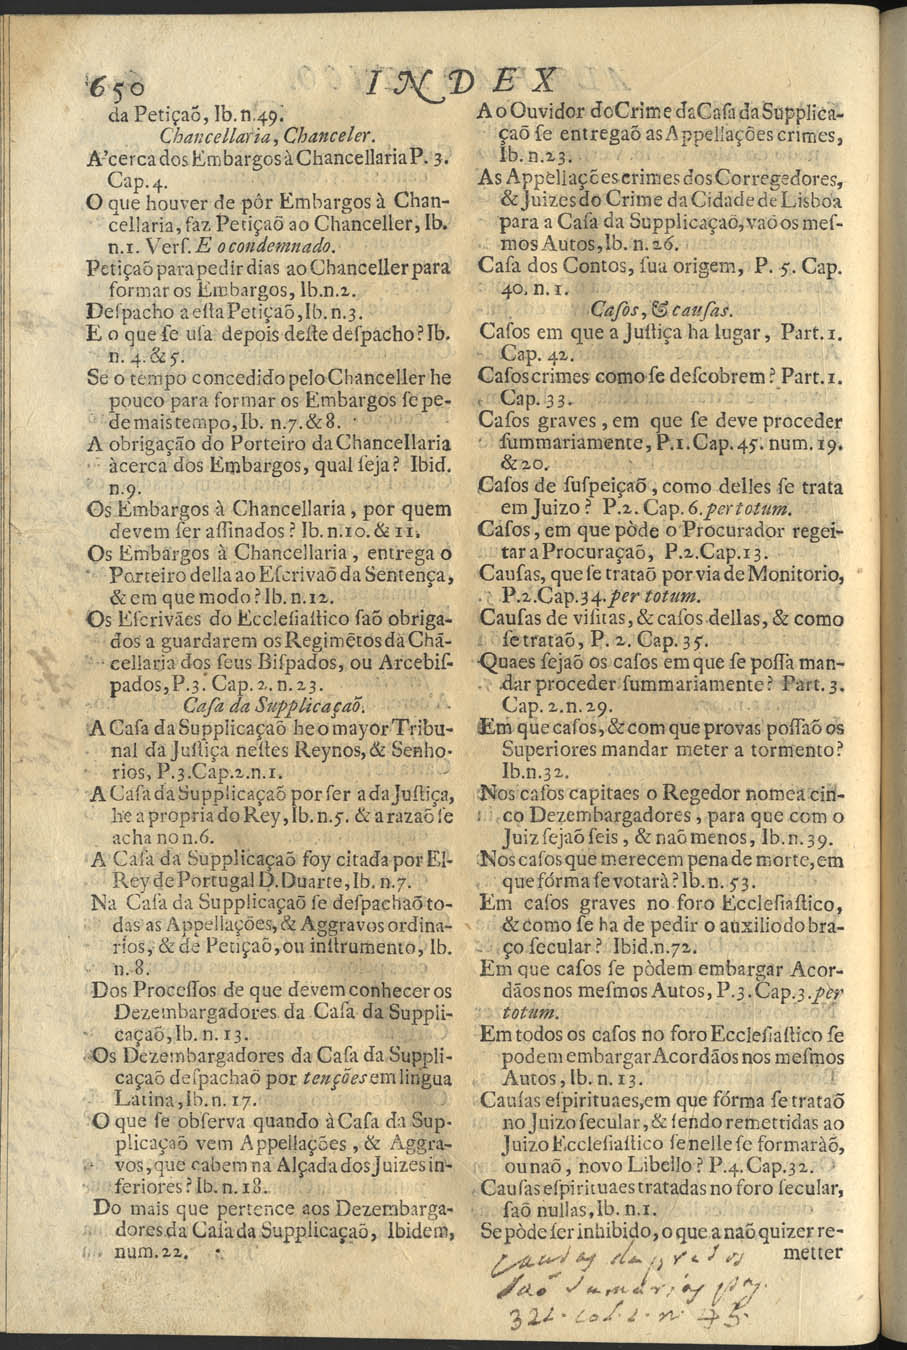 650 INDEX
da Petiçaõ, Ib. n.49.
Chancellaria, Chanceler.
A'cerca dos Embargos à Chancellaria P. 3.
Cap. 4.
O que houver de pôr Embargos à Chan-
cellaria, faz Petiçaõ ao Chanceller, Ib.
n.1. Verſ. E o condemnado.
Petiçaõ para pedir dias ao Chanceller para
formar os Embargos, Ib.n.2.
Deſpacho a eſta Petiçaõ, Ib. n.3.
E o que ſe uſa depois deſte deſpacho? Ib.
n. 4. & 5.
Se o tempo concedido pelo Chanceller he
pouco para formar os Embargos ſe pe-
de mais tempo, Ib. n.7. & 8.
A obrigação do Porteiro da Chancellaria
àcerca dos Embargos, qual ſeja? Ibid.
n.9.
Os Embargos à Chancellaria, por quem
devem ſer aſſinados? Ib. n.10. & 11.
Os Embargos à Chancellaria, entrega o
Porteiro della ao Eſcrivaõ da Sentença,
& em que modo? Ib. n.12.
Os Eſcrivães do Eccleſiaſtico ſaõ obriga-
dos a guardarem os Regimẽtos da Chã-
cellaria dos ſeus Biſpados, ou Arcebiſ-
pados, P.3. Cap. 2. n. 23.
Caſa da Supplicaçaõ.
A Caſa da Supplicaçaõ he o mayor Tribu-
nal da Juſtiça neſtes Reynos, & Senho-
rios, P.3.Cap.2.n.1.
A Caſa da Supplicaçaõ por ſer a da Juſtiça,
he a propria do Rey, Ib. n.5. & a razaõ ſe
acha no n.6.
A Caſa da Supplicaçaõ foy citada por El-
Rey de Portugal D. Duarte, Ib. n.7.
Na Caſa da Supplicaçaõ ſe deſpachaõ to-
das as Appellações, & Aggravos ordina-
rios, & de Petiçaõ, ou inſtrumento, Ib.
n. 8.
Dos Proceſſos de que devem conhecer os
Dezembargadores da Caſa da Suppli-
caçaõ, Ib. n. 13.
Os Dezembargadores da Caſa da Suppli-
caçaõ deſpachaõ por tenções em lingua
Latina, Ib. n. 17.
O que ſe obſerva quando à Caſa da Sup-
plicaçaõ vem Appellações, & Aggra-
vos, que cabem na Alçada dos Juizes in-
feriores? Ib. n. 18.
Do mais que pertence aos Dezembarga-
dores da Caſa da Supplicaçaõ, Ibidem,
num. 22.
Ao Ouvidor do Crime da Caſa da Supplica-
çaõ ſe entregaõ as Appellações crimes,
Ib. n.23.
As Appellações crimes dos Corregedores,
& Juizes do Crime da Cidade de Lisboa
para a Caſa da Supplicaçaõ, vaõ os meſ-
mos Autos, Ib. n. 26.
Caſa dos Contos, ſua origem, P. 5. Cap.
40. n. 1.
Caſos, & cauſas.
Caſos em que a Juſtiça ha lugar, Part. 1.
Cap. 42.
Caſos crimes como ſe deſcobrem? Part. 1.
Cap. 33.
Caſos graves, em que ſe deve proceder
ſummariamente, P.1. Cap. 45. num. 19.
& 20.
Caſos de ſuſpeiçaõ, como delles ſe trata
em Juizo? P.2. Cap. 6. per totum.
Caſos, em que pòde o Procurador regei-
tar a Procuraçaõ, P.2.Cap.13.
Cauſas, que ſe trataõ por via de Monitorio,
P.2.Cap.34. per totum.
Cauſas de viſitas, & caſos dellas, & como
ſe trataõ, P. 2. Cap. 35.
Quaes ſejaõ os caſos em que ſe poſſa man-
dar proceder ſummariamente? Part. 3.
Cap. 2. n. 29.
Em que caſos, & com que provas poſſaõ os
Superiores mandar meter a tormento?
Ib.n.32.
Nos caſos capitaes o Regedor nomea cin-
co Dezembargadores, para que com o
Juiz ſejaõ ſeis, & naõ menos, Ib. n. 39.
Nos caſos que merecem pena de morte, em
que fórma ſe votarà? Ib. n. 53.
Em caſos graves no foro Eccleſiaſtico,
& como ſe ha de pedir o auxilio do bra-
ço ſecular? Ibid.n.72.
Em que caſos ſe pòdem embargar Acor-
dãos nos meſmos Autos, P. 3. Cap. 3. per
totum.
Em todos os caſos no foro Eccleſiaſtico ſe
podem embargar Acordãos nos meſmos
Autos, Ib. n. 13.
Cauſas eſpirituaes, em que fórma ſe trataõ
no Juizo ſecular, & ſendo remettidas ao
Juizo Eccleſiaſtico ſe nelle ſe formaràõ,
ou naõ, novo Libello? P.4. Cap.32.
Cauſas eſpirituaes tratadas no foro ſecular,
ſaõ nullas, Ib. n.1.
Se pòde ſer inhibido, o que a naõ quizer re-
metter
Causas de prezos
saõ sumarias pag.
321. col. 2. n. 45.